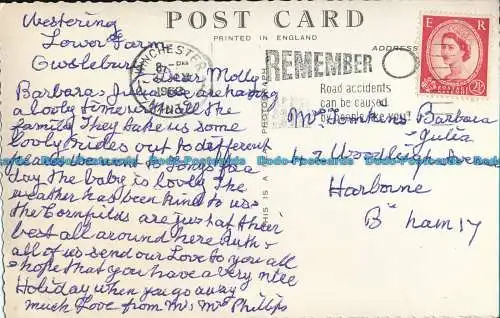 POST CARD
PRINTED IN ENGLAND
ADDRESS
Westering
Lower Farm
Dear Molly
Barbara, Julia we are having
a looly time with all the
family They take us some
looly Rides out to different
places we went to
day The baby is looly The
weather has been kind to us
the Cornfields are just at their
best all around here Ruth &
all of us send our Love to you all
& hope that you have a very nice
Holiday when you go away
much Love from Mr, Mrs Phillips
REMEMBER
Road accidents
can be caused
by people like you!
E R
POSTAGE REVENUE
2½D
Mrs Tomkins Barbara
Julia
Woodleigh Ave
Harborne
B'ham 17
PHOTOGRAPH
THIS IS A
Dodo-Postcards Dodo-Postcards Dodo-Postcards Dodo-Postcards Dodo-Postcards